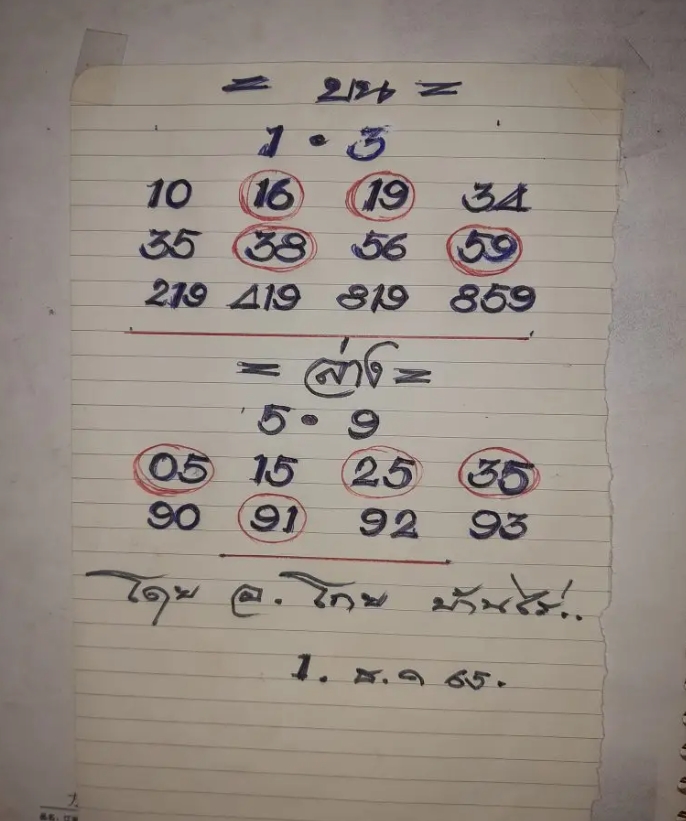 = บน =
1 • 3
10 16 19 34
35 38 56 59
219 419 819 859
= ล่าง =
5 • 9
05 15 25 35
90 91 92 93
โดย อ. โทย บ้านไร่..
1. ธ.ค 65.